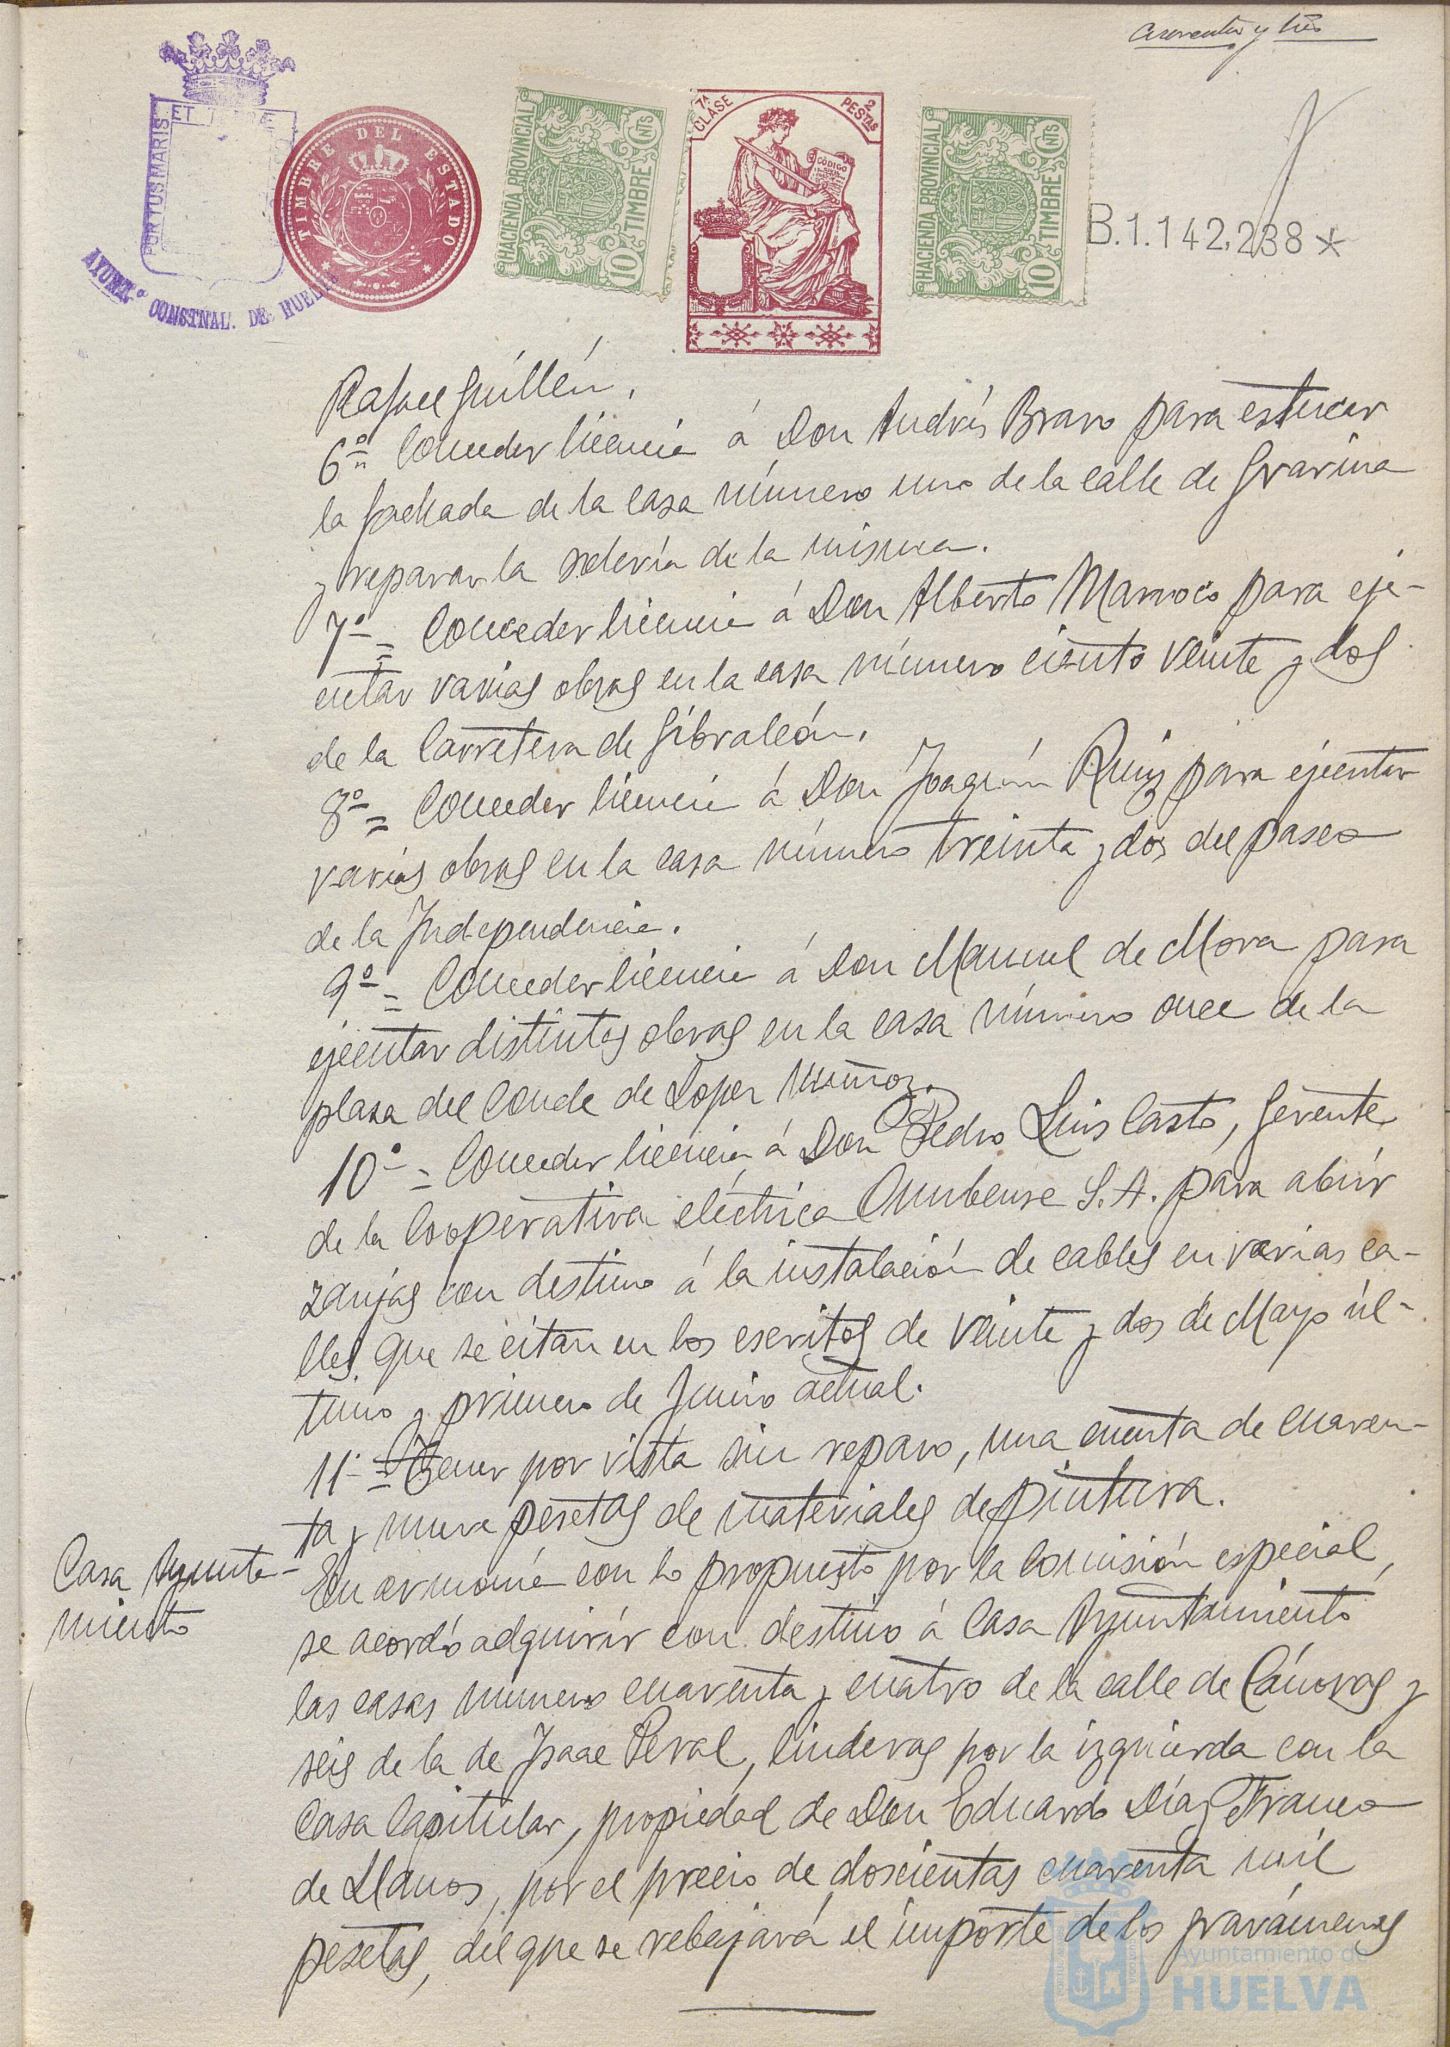 cuarenta y tres
PORTUS MARIS ET
AYUNT.º CONSTNAL. DE HUELVA
TIMBRE DEL ESTADO
HACIENDA PROVINCIAL
10 CNTS
TIMBRE
7ª CLASE
2 PESTAS
CÓDIGO
HACIENDA PROVINCIAL
10 CNTS
TIMBRE
B.1.142,238*
Rafael Guillén.
6º = Conceder licencia á Don Andrés Bravo para estucar
la fachada de la casa número uno de la calle de Gravina
y reparar la solería de la misma.
7º = Conceder licencia á Don Alberto Marroco para eje-
cutar varias obras en la casa número ciento veinte y dos
de la Carretera de Gibraleón.
8º = Conceder licencia á Don Joaquín Ruiz para ejecutar
varias obras en la casa número treinta y dos del paseo
de la Independencia.
9º = Conceder licencia á Don Manuel de Mora para
ejecutar distintas obras en la casa número once de la
plaza del Conde de Lopez Muñoz.
10º = Conceder licencia á Don Pedro Luis Casto, Gerente
de la Cooperativa eléctrica Onubense S.A. para abrir
zanjas con destino á la instalación de cables en varias ca-
lles que se citan en los escritos de veinte y dos de Mayo úl-
timo y primero de Junio actual.
11º = Tener por vista sin reparo, una cuenta de cuaren-
ta y nueve pesetas de materiales de pintura.
Casa Ayunta-
miento
En armonía con lo propuesto por la Comisión especial,
se acordó adquirir con destino á Casa Ayuntamiento
las casas número cuarenta y cuatro de la calle de Cánovas y
seis de la de Isaac Peral, linderas por la izquierda con la
Casa Capitular, propiedad de Don Eduardo Díaz Franco
de Llanos, por el precio de doscientas cuarenta mil
pesetas, del que se rebajará el importe de los gravámenes
Ayuntamiento de
HUELVA